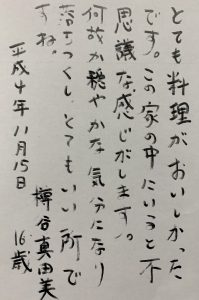 とても料理がおいしかった
です。この家の中にいると不
思議な感じがします。
何故か穏やかな気分になり
落ちつくし、とてもいい所で
すね。
平成十年11月15日
樽谷真由美 16歳